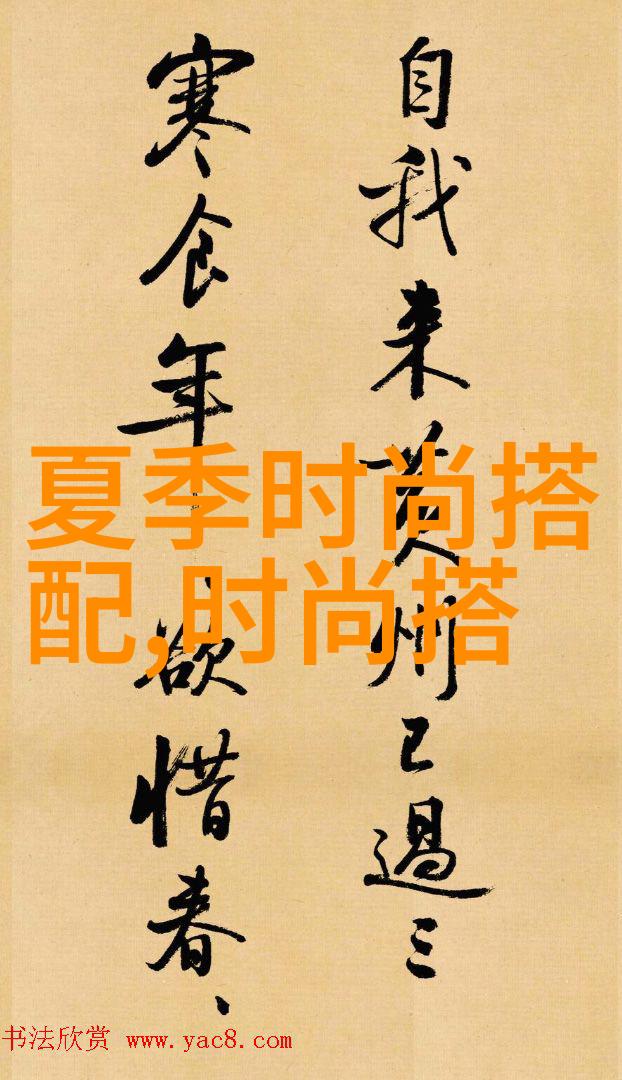 自我来黄州已過三
寒食年、欲惜春、
夏季时尚搭
配,时尚搭
书法欣赏 www.yac8.com